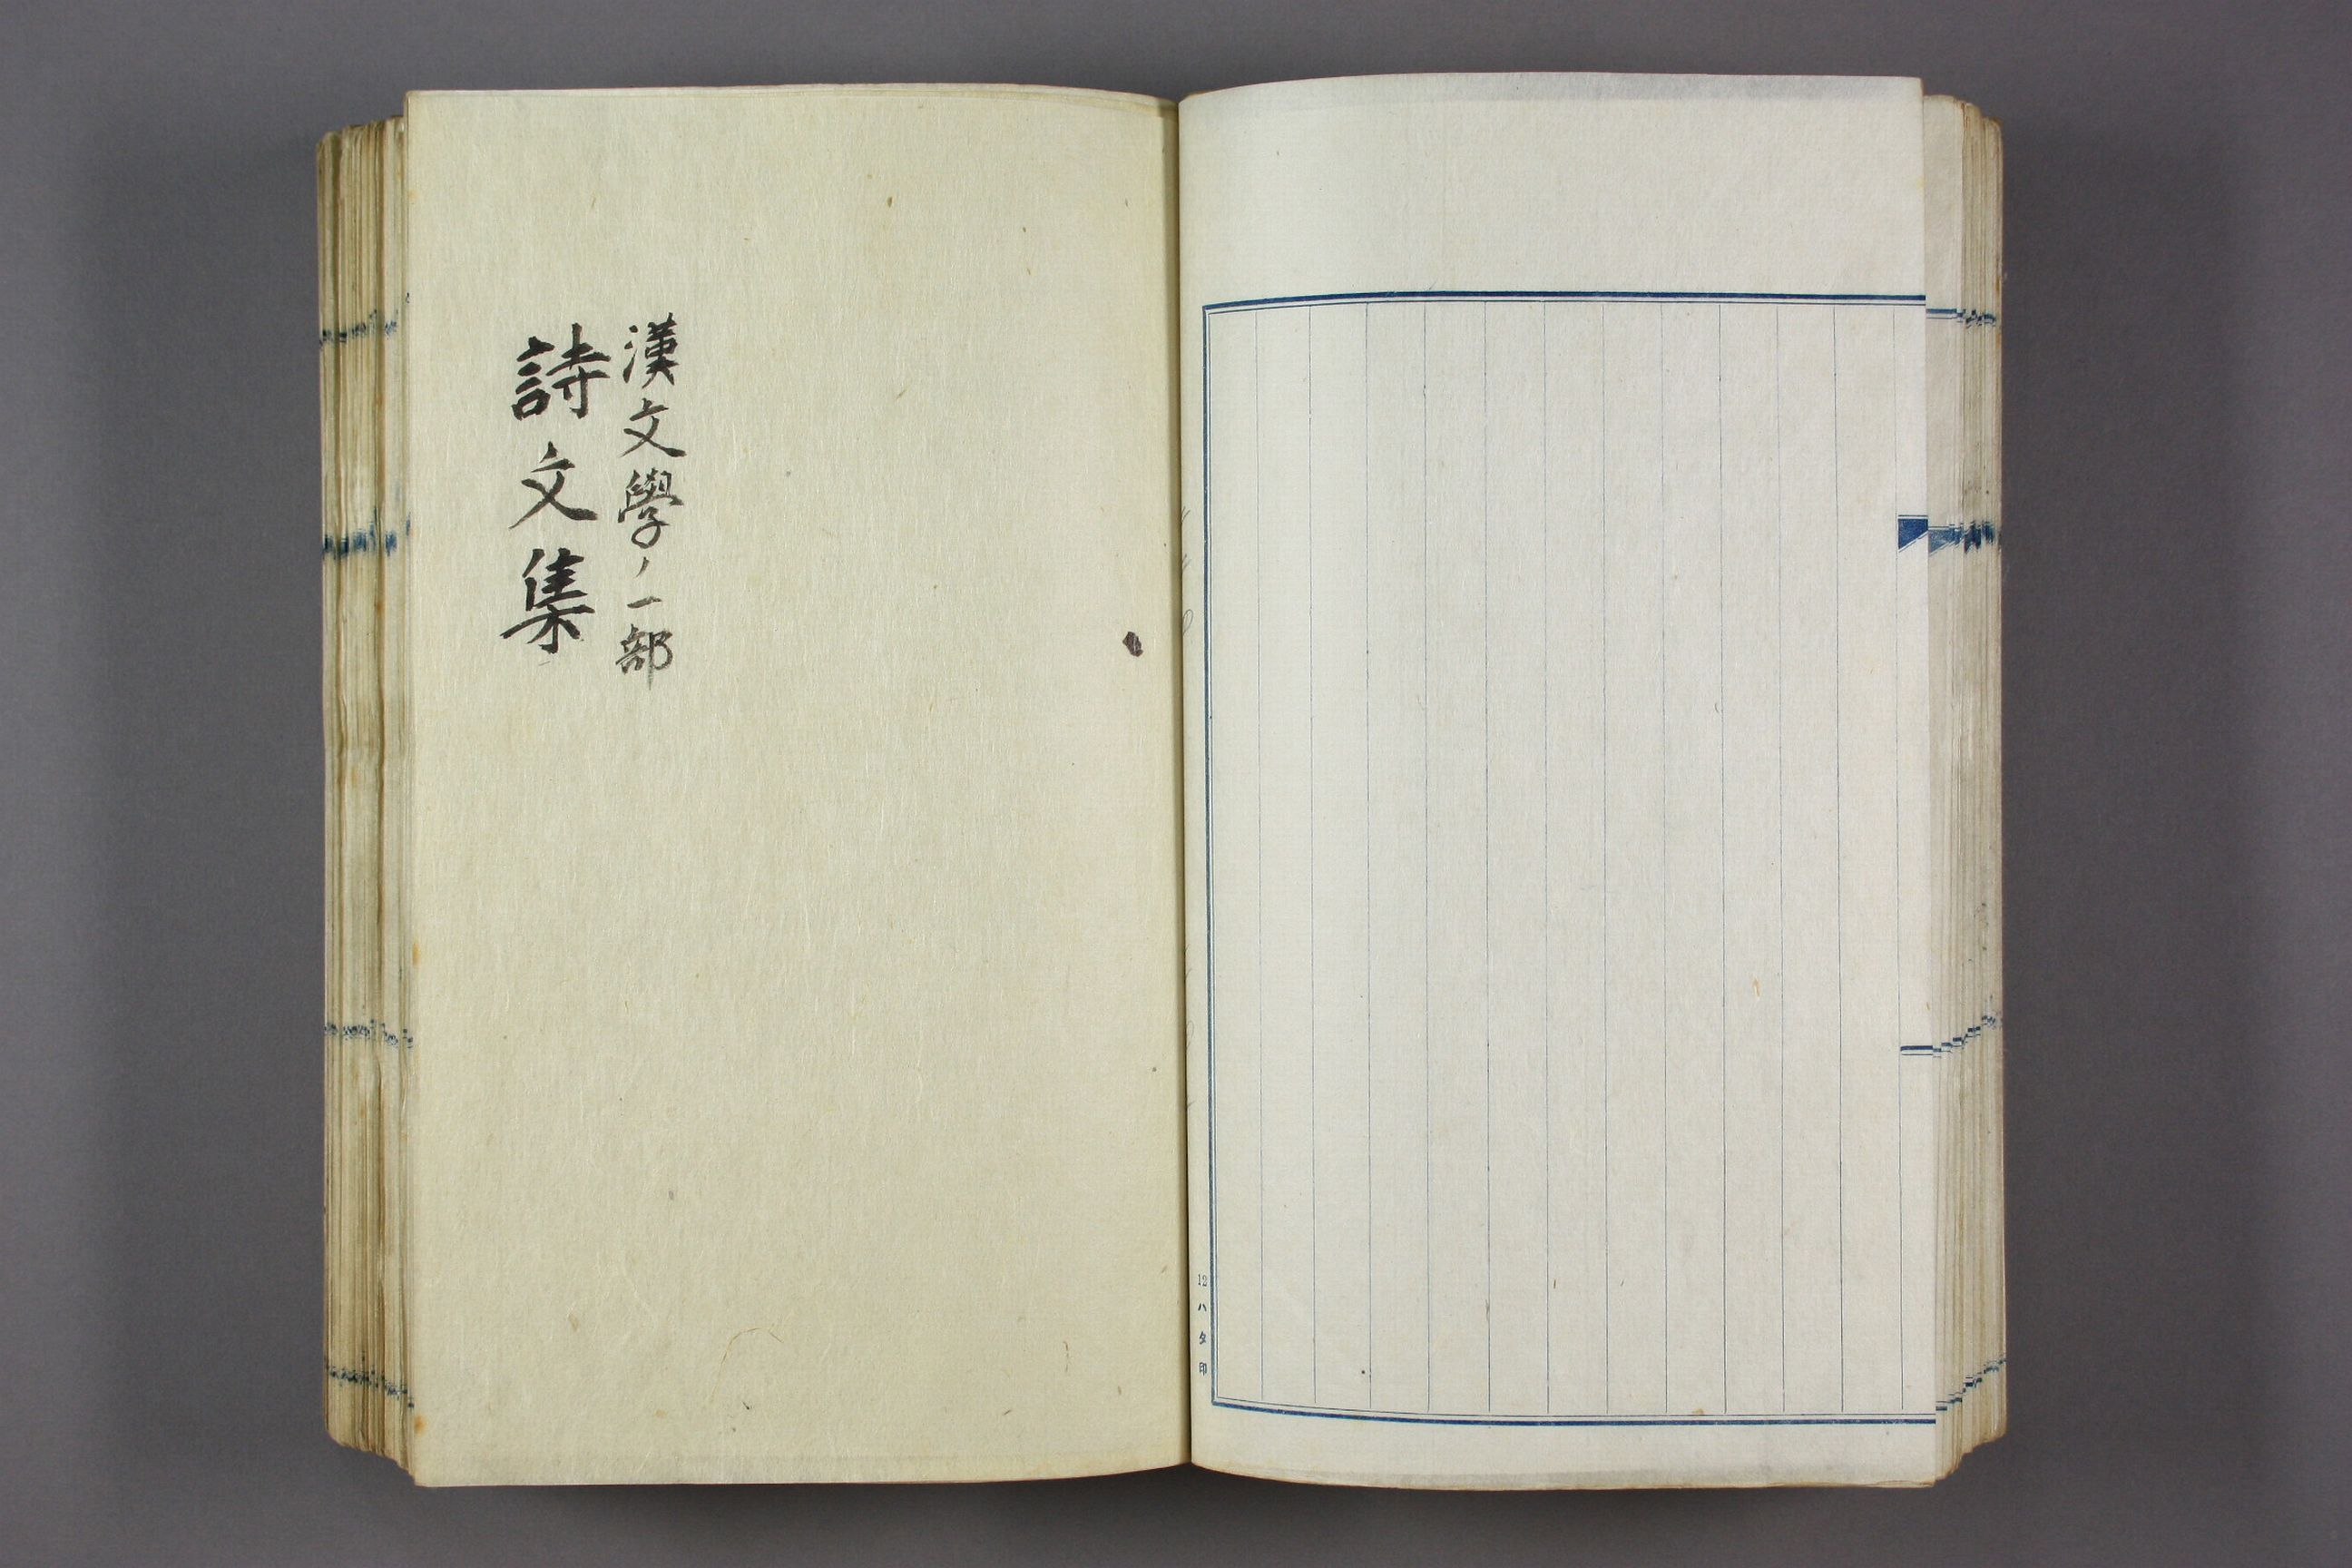 漢文學ノ一部
詩文集
12ハタ印